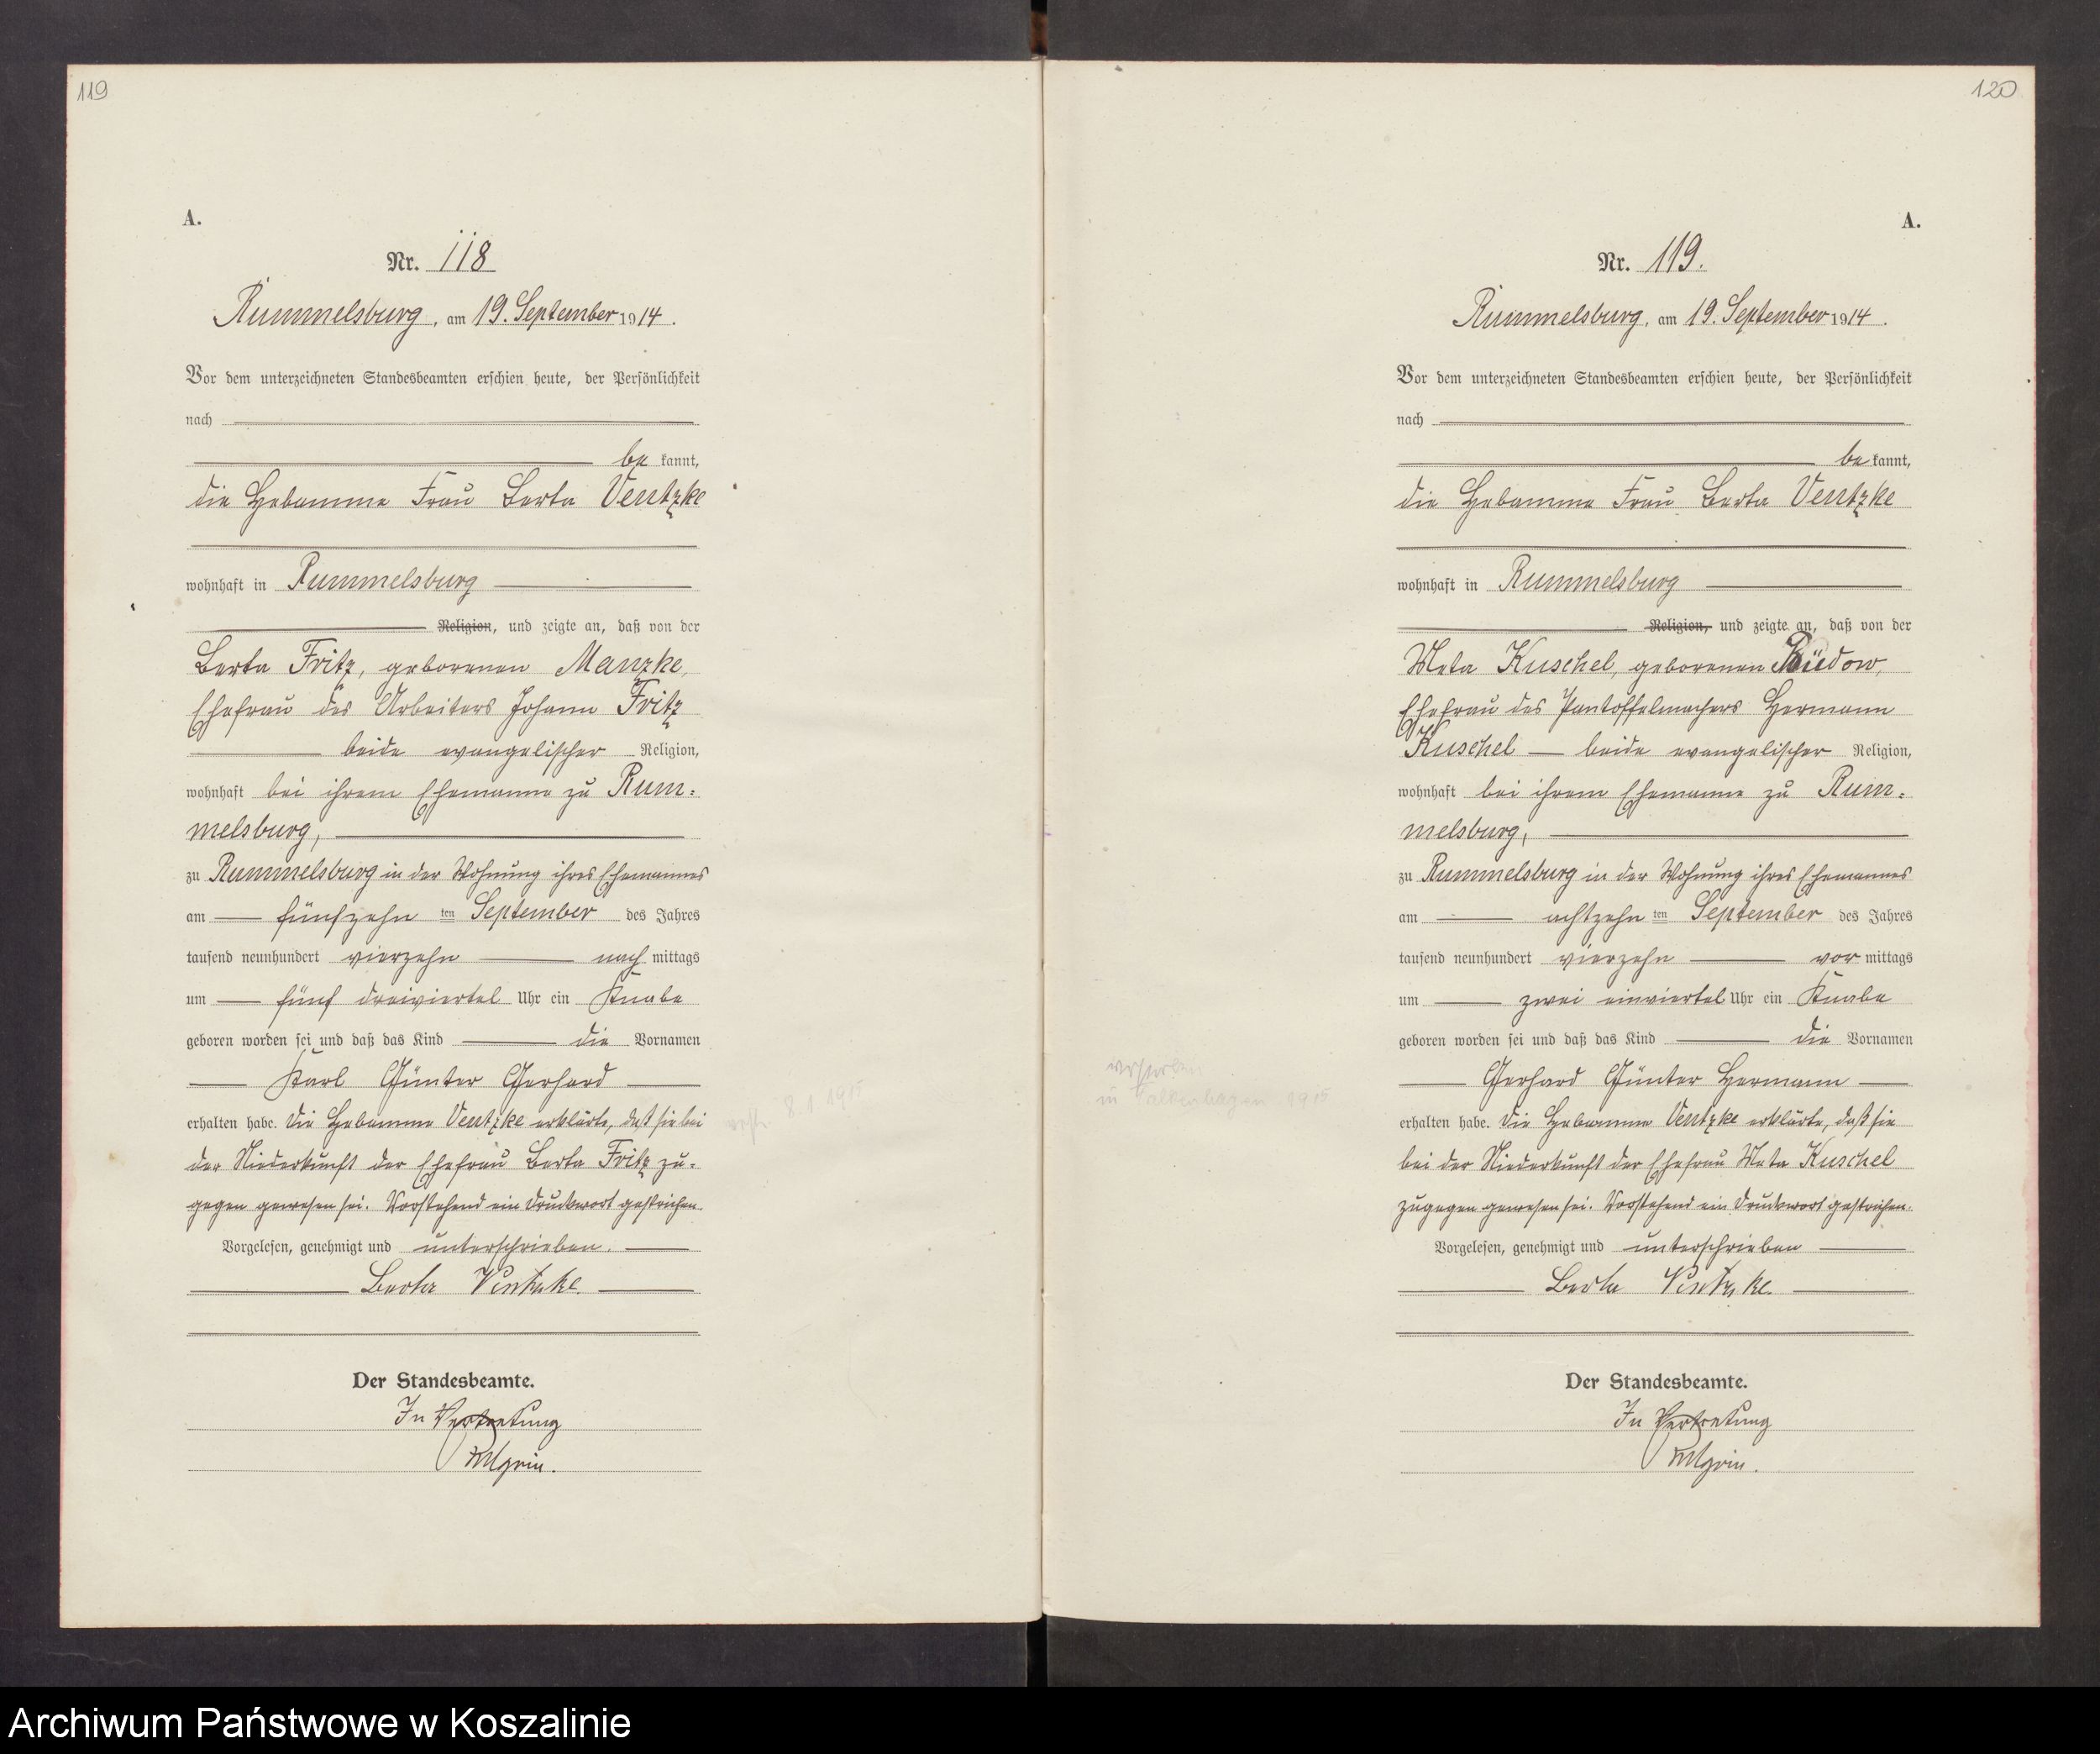 119
A.
Nr. 118
Rummelsburg, am 19. September 1914.
Vor dem unterzeichneten Standesbeamten erschien heute, der Persönlichkeit
nach
be kannt,
die Hebamme Frau Berta Ventzke
wohnhaft in Rummelsburg
Religion, und zeigte an, daß von der
Berta Fritz, geborenen Manzke,
Ehefrau des Arbeiters Johann Fritz
beide evangelischer Religion,
wohnhaft bei ihrem Ehemanne zu Rum-
melsburg,
zu Rummelsburg in der Wohnung ihres Ehemannes
am fünfzehn ten September des Jahres
tausend neunhundert vierzehn nach mittags
um fünf dreiviertel Uhr ein Knabe
geboren worden sei und daß das Kind die Vornamen
Karl Günter Gerhard
erhalten habe. Die Hebamme Ventzke erklärte, daß sie bei
der Niederkunft der Ehefrau Berta Fritz zu-
gegen gewesen sei. Vorstehend ein Druckwort gestrichen.
Vorgelesen, genehmigt und unterschrieben.
Berta Ventzke.
Der Standesbeamte.
In Vertretung
8.1.1915
120
A.
Nr. 119.
Rummelsburg, am 19. September 1914.
Vor dem unterzeichneten Standesbeamten erschien heute, der Persönlichkeit
nach
be kannt,
die Hebamme Frau Berta Ventzke
wohnhaft in Rummelsburg
Religion, und zeigte an, daß von der
Meta Kuschel, geborenen Rüdow,
Ehefrau des Pantoffelmachers Hermann
Kuschel beide evangelischer Religion,
wohnhaft bei ihrem Ehemanne zu Rum-
melsburg,
zu Rummelsburg in der Wohnung ihres Ehemannes
am achtzehn ten September des Jahres
tausend neunhundert vierzehn vor mittags
um zwei einviertel Uhr ein Knabe
geboren worden sei und daß das Kind die Vornamen
Gerhard Günter Hermann
erhalten habe. Die Hebamme Ventzke erklärte, daß sie
bei der Niederkunft der Ehefrau Meta Kuschel
zugegen gewesen sei. Vorstehend ein Druckwort gestrichen.
Vorgelesen, genehmigt und unterschrieben
Berta Ventzke.
Der Standesbeamte.
In Vertretung
verstorben
in Falkenhagen 1915
Archiwum Państwowe w Koszalinie